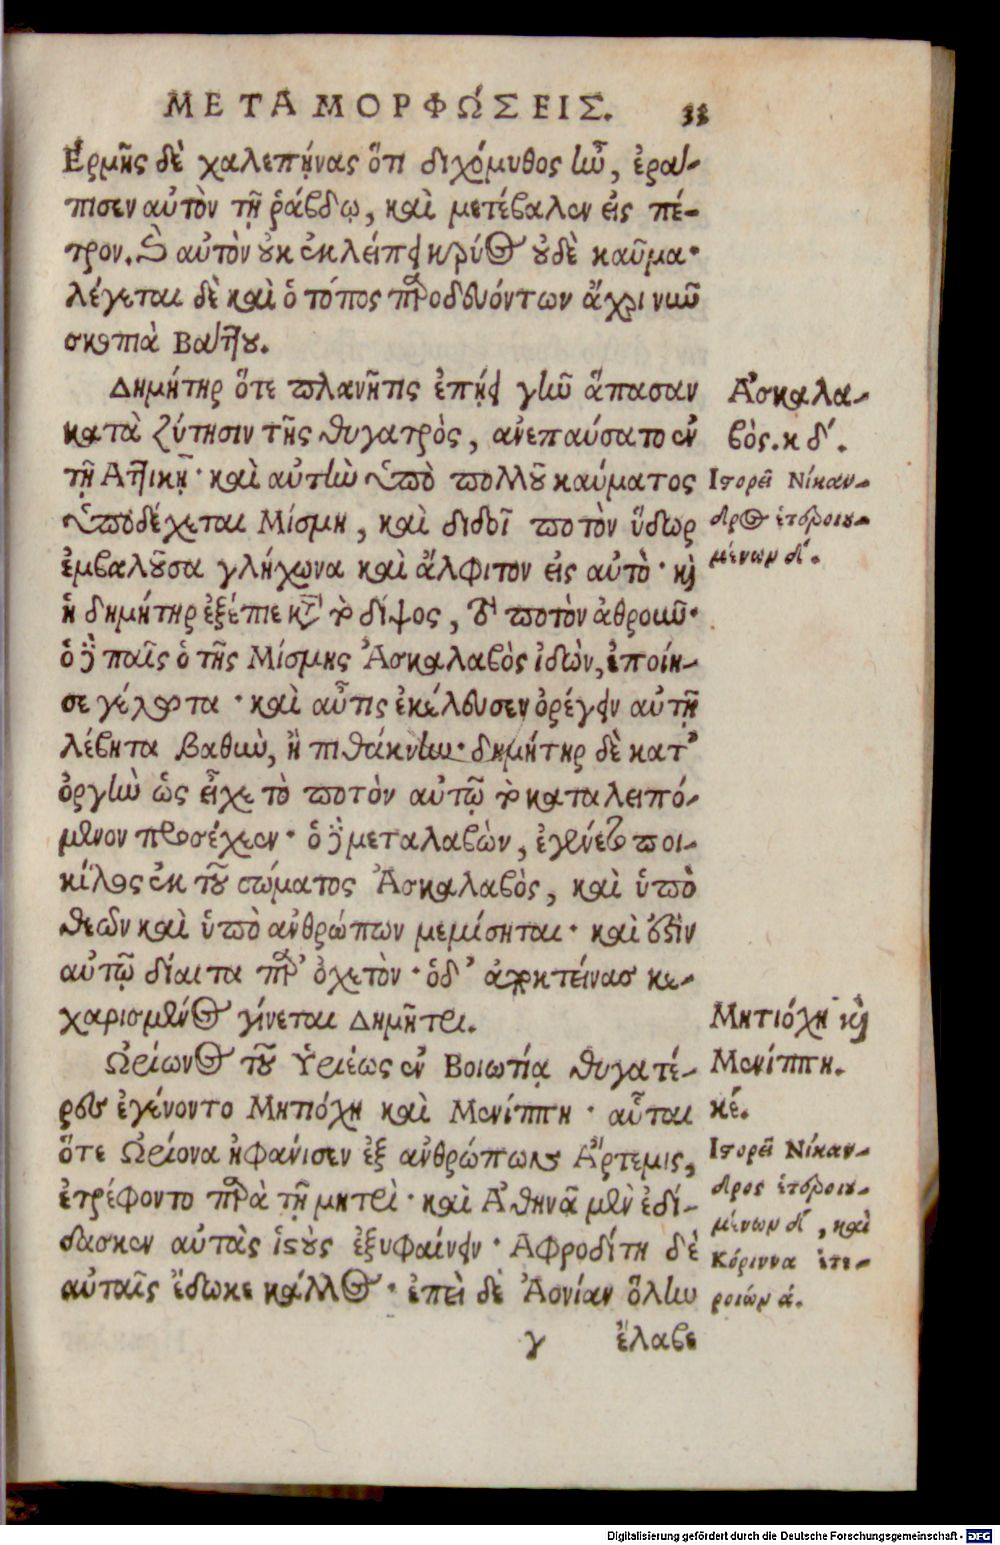 ΜΕΤΑΜΟΡΦΏΣΕΙΣ. 33
Ἑρμῆς δὲ χαλεπήνας ὅτι διχόμυθος ἦν, ἐράπ-
πισεν αὐτὸν τῇ ῥάβδῳ, καὶ μετέβαλεν εἰς πέ-
τρον. Ὃ αὐτὸν οὐκ ἐκλείπει κρύος οὐδὲ καῦμα·
λέγεται δὲ καὶ ὁ τόπος παροδευόντων ἄχρι νῦν
σκοπιὰ Βάττου.
Δημήτηρ ὅτε πλανῆτις ἐπῄει γῆν ἅπασαν
κατὰ ζήτησιν τῆς θυγατρὸς, ἀνεπαύσατο ἐν
τῇ Ἀττικῇ· καὶ αὐτὴν ὑπὸ πολλοῦ καύματος
ὑποδέχεται Μίσμη, καὶ διδοῖ ποτὸν ὕδωρ
ἐμβαλοῦσα γλήχωνα καὶ ἄλφιτον εἰς αὐτὸ· καὶ
ἡ δημήτηρ ἐξέπιε κατὰ τὸ δίψος, τὸ ποτὸν ἀθροῦν·
ὁ δὲ παῖς ὁ τῆς Μίσμης Ἀσκαλαβὸς ἰδὼν, ἐποίη-
σε γέλωτα· καὶ αὖτις ἐκέλευσεν ὀρέγειν αὐτῇ
λέβητα βαθὺν, ἢ πιθάκνην· δημήτηρ δὲ κατ'
ὀργὴν ὡς εἶχε τὸ ποτὸν αὐτῷ τὸ καταλειπό-
μενον προσέχεεν· ὁ δὲ μεταλαβὼν, ἐγένετο ποι-
κίλος ἐκ τοῦ σώματος Ἀσκαλαβὸς, καὶ ὑπὸ
θεῶν καὶ ὑπὸ ἀνθρώπων μεμίσηται· καὶ ἔστιν
αὐτῷ δίαιτα παρ' ὀχετὸν· ὁ δ' ἀποκτείνας κε-
χαρισμένος γίνεται Δημήτρι.
Ὠρίωνος τοῦ Ὑριέως ἐν Βοιωτίᾳ θυγατέ-
ρες ἐγένοντο Μητιόχη καὶ Μενίππη· αὗται
ὅτε Ὠρίονα ἠφάνισεν ἐξ ἀνθρώπων Ἄρτεμις,
ἐτρέφοντο παρὰ τῇ μητρὶ· καὶ Ἀθηνᾶ μὲν ἐδί-
δασκεν αὐτὰς ἱστοὺς ἐξυφαίνειν· Ἀφροδίτη δὲ
αὐταῖς ἔδωκε κάλλος· ἐπεὶ δὲ Ἀονίαν ὅλην
γ ἔλαβε
Ἀσκαλα-
βὸς. κδ´.
Ἱστορεῖ Νίκαν-
δρος ἑτεροιου-
μένων δ´.
Μητιόχη καὶ
Μενίππη.
κέ.
Ἱστορεῖ Νίκαν-
δρος ἑτεροιου-
μένων δ´, καὶ
Κόριννα ἑτε-
ροιών ά.
Digitalisierung gefördert durch die Deutsche Forschungsgemeinschaft - DFG